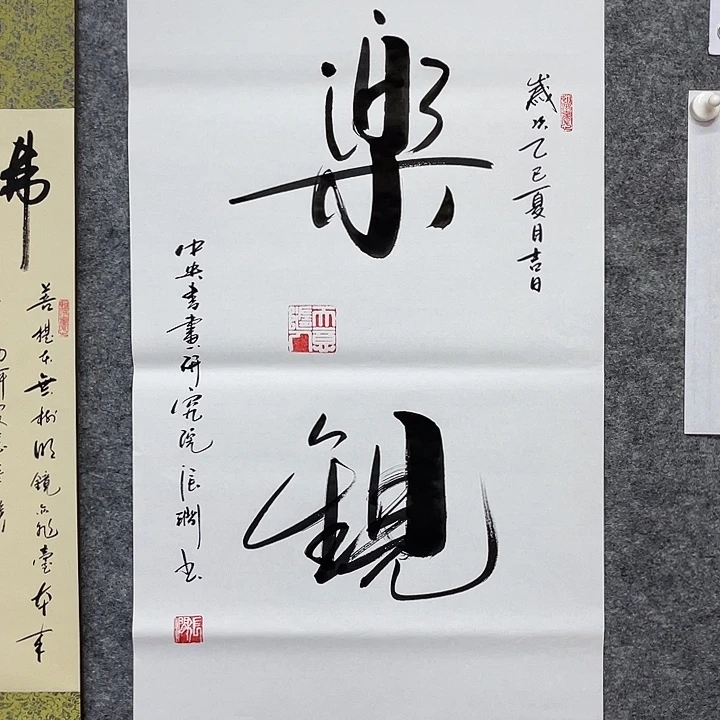 歲次乙巳夏月吉日
樂觀
中央書畫研究院張潤書
佛
菩提本無樹明鏡亦非臺本來